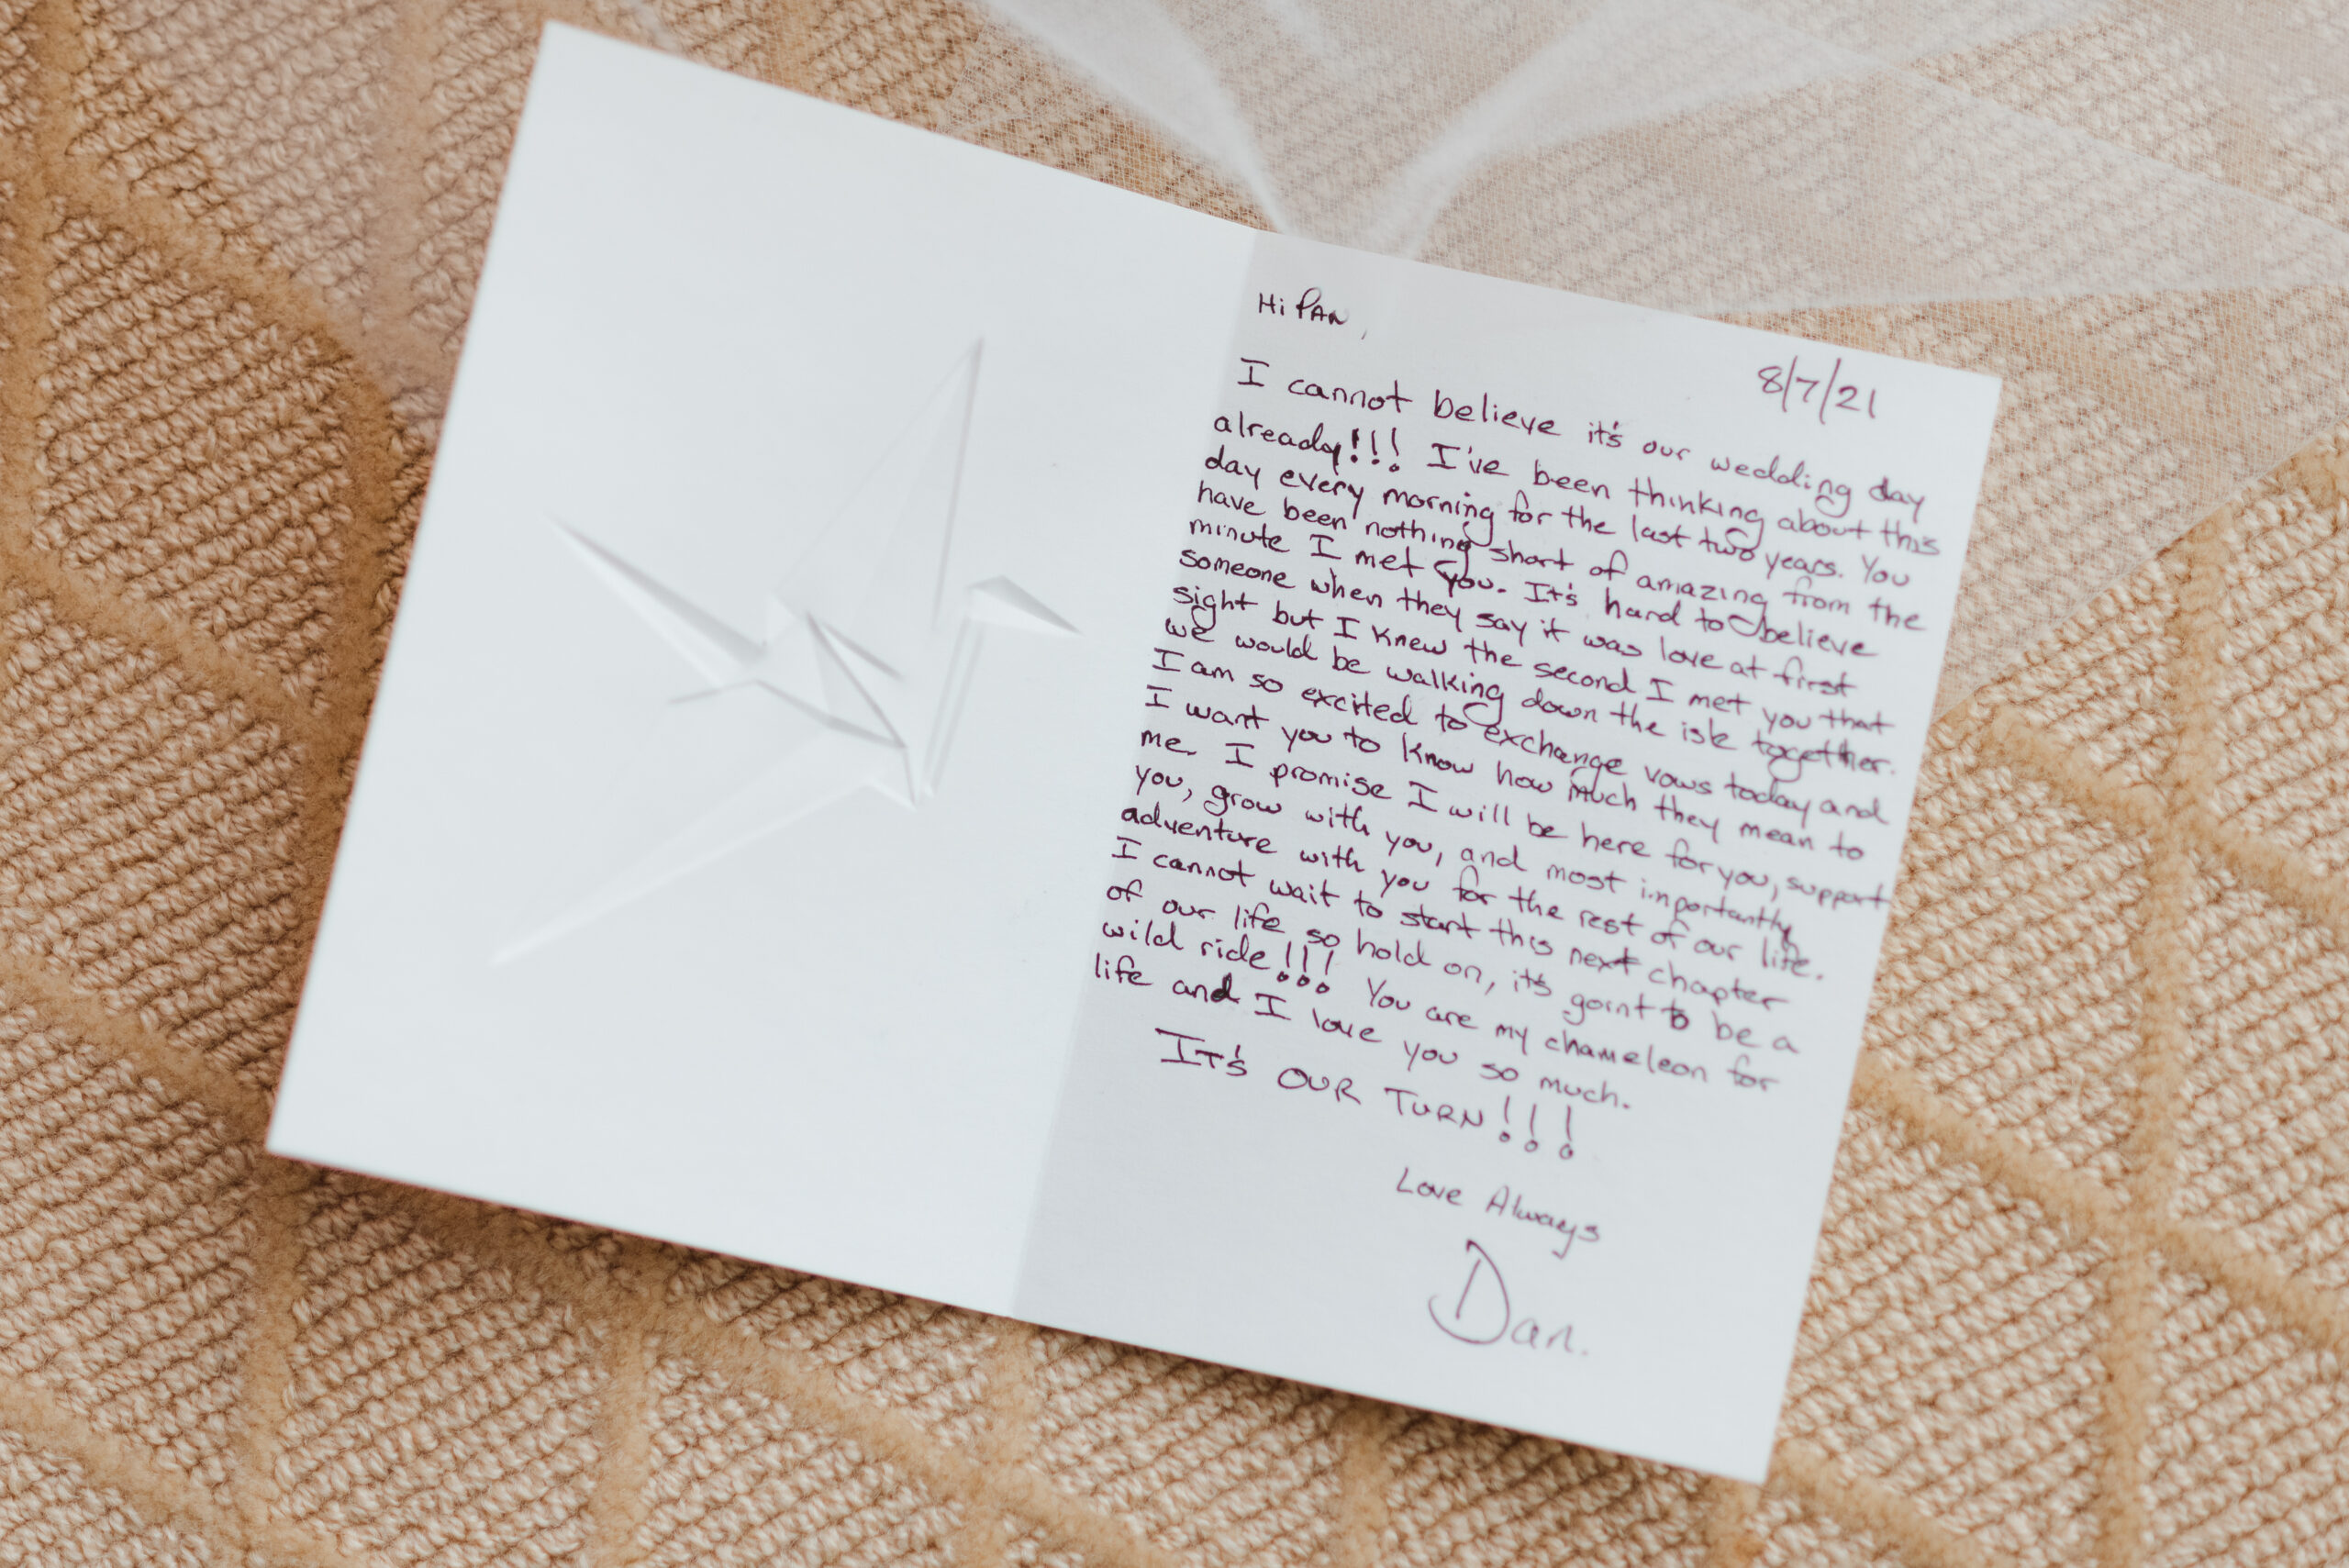 Hi PAN,
8/7/21
I cannot believe it's our wedding day
already!!! I've been thinking about this
day every morning for the last two years. You
have been nothing short of amazing from the
minute I met you. It's hard to believe
someone when they say it was love at first
sight but I knew the second I met you that
we would be walking down the isle together.
I am so excited to exchange vows today and
I want you to know how much they mean to
me. I promise I will be here for you, support
you, grow with you, and most importantly
adventure with you for the rest of our life.
I cannot wait to start this next chapter
of our life so hold on, it's goint to be a
wild ride!!! You are my chameleon for
life and I love you so much.
IT'S OUR TURN!!!
Love Always
Dan.